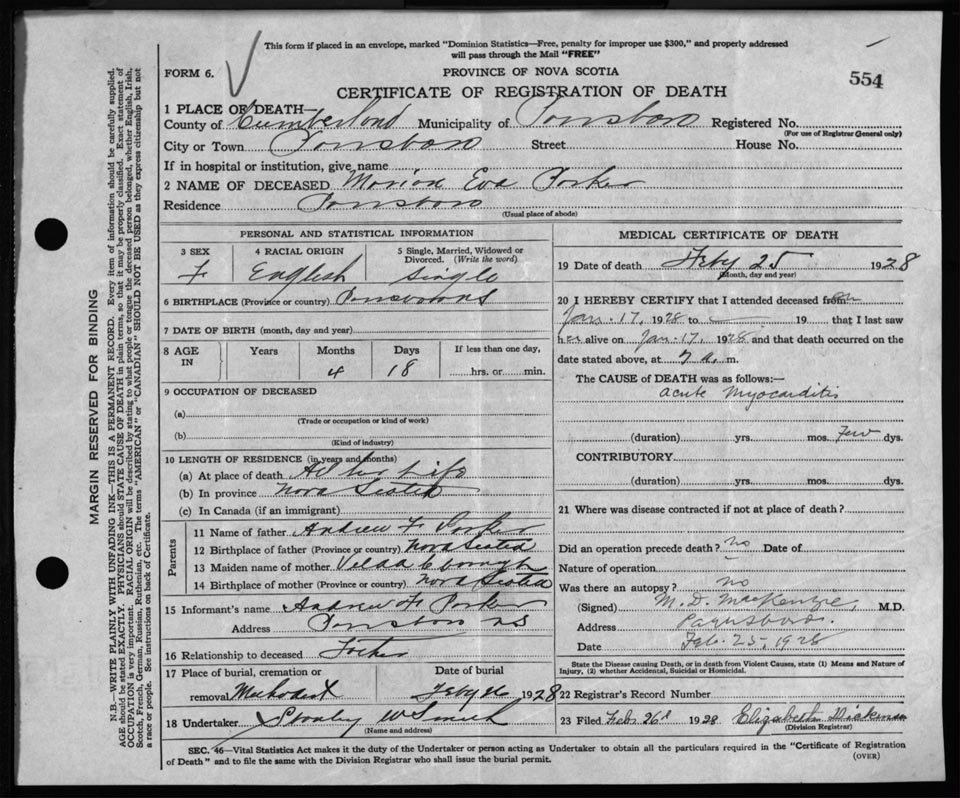 This form if placed in an envelope, marked "Dominion Statistics—Free, penalty for improper use $300," and properly addressed
will pass through the Mail "FREE"
FORM 6.
PROVINCE OF NOVA SCOTIA
554
CERTIFICATE OF REGISTRATION OF DEATH
1 PLACE OF DEATH—
County of Cumberland Municipality of Parrsboro Registered No.
(For use of Registrar General only)
City or Town Parrsboro Street House No.
If in hospital or institution, give name
2 NAME OF DECEASED Marion Eva Parker
Residence Parrsboro
(Usual place of abode)
PERSONAL AND STATISTICAL INFORMATION
3 SEX 4 RACIAL ORIGIN 5 Single, Married, Widowed or
Divorced. (Write the word)
F English Single
6 BIRTHPLACE (Province or country) Parrsboro NS
7 DATE OF BIRTH (month, day and year)
8 AGE IN Years Months Days If less than one day,
4 18 hrs. or min.
9 OCCUPATION OF DECEASED
(a)
(Trade or occupation or kind of work)
(b)
(Kind of industry)
10 LENGTH OF RESIDENCE (in years and months)
(a) At place of death All her Life
(b) In province Nova Scotia
(c) In Canada (if an immigrant)
Parents
11 Name of father Andrew F Parker
12 Birthplace of father (Province or country) Nova Scotia
13 Maiden name of mother Velda
14 Birthplace of mother (Province or country) Nova Scotia
15 Informant's name Andrew F Parker
Address Parrsboro NS
16 Relationship to deceased Father
17 Place of burial, cremation or Date of burial
removal Methodist Feby 26 1928
18 Undertaker Stanley W Smith
(Name and address)
MEDICAL CERTIFICATE OF DEATH
19 Date of death Feby 25 1928
(Month, day and year)
20 I HEREBY CERTIFY that I attended deceased from on
Jan. 17, 1928 to — 19 that I last saw
her alive on Jan. 17, 1928, and that death occurred on the
date stated above, at 7 a. m.
The CAUSE of DEATH was as follows:—
Acute Myocarditis
(duration) yrs. mos. Few dys.
CONTRIBUTORY.
(duration) yrs. mos. dys.
21 Where was disease contracted if not at place of death?
Did an operation precede death? no Date of
Nature of operation
Was there an autopsy? no
(Signed) M. D. MacKenzie, M.D.
Address Parrsboro.
Date Feb. 25, 1928
State the Disease causing Death, or in death from Violent Causes, state (1) Means and Nature of
Injury, (2) whether Accidental, Suicidal or Homicidal.
22 Registrar's Record Number
23 Filed Feb 26th 1928 Elizabeth Dickinson
(Division Registrar)
SEC. 46—Vital Statistics Act makes it the duty of the Undertaker or person acting as Undertaker to obtain all the particulars required in the "Certificate of Registration
of Death" and to file the same with the Division Registrar who shall issue the burial permit.
(OVER)
MARGIN RESERVED FOR BINDING
N.B.—WRITE PLAINLY WITH UNFADING INK—THIS IS A PERMANENT RECORD. Every item of information should be carefully supplied.
AGE should be stated EXACTLY. PHYSICIANS should STATE CAUSE OF DEATH in plain terms, so that it may be properly classified. Exact statement of
OCCUPATION is very important. RACIAL ORIGIN will be described by stating to what people or tongue the deceased person belonged, whether English, Irish,
Scotch, French, German, Russian, Ruthenian, etc. The terms "AMERICAN" or "CANADIAN" SHOULD NOT BE USED as they express citizenship but not
a race or people. See instructions on back of Certificate.